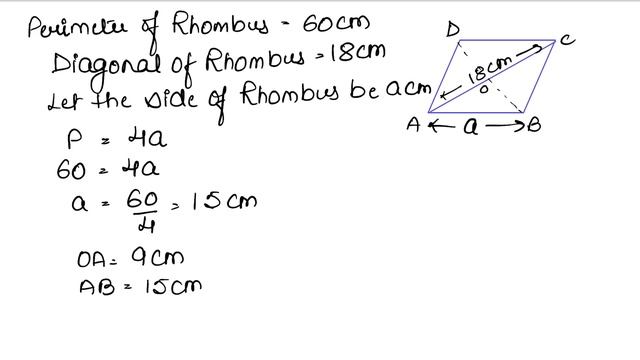 Perimeter of Rhombus = 60cm
Diagonal of Rhombus = 18cm
Let the side of Rhombus be a cm
P = 4a
60 = 4a
a = 60/4 = 15cm
OA = 9cm
AB = 15cm
D
C
18cm
O
A
a
B